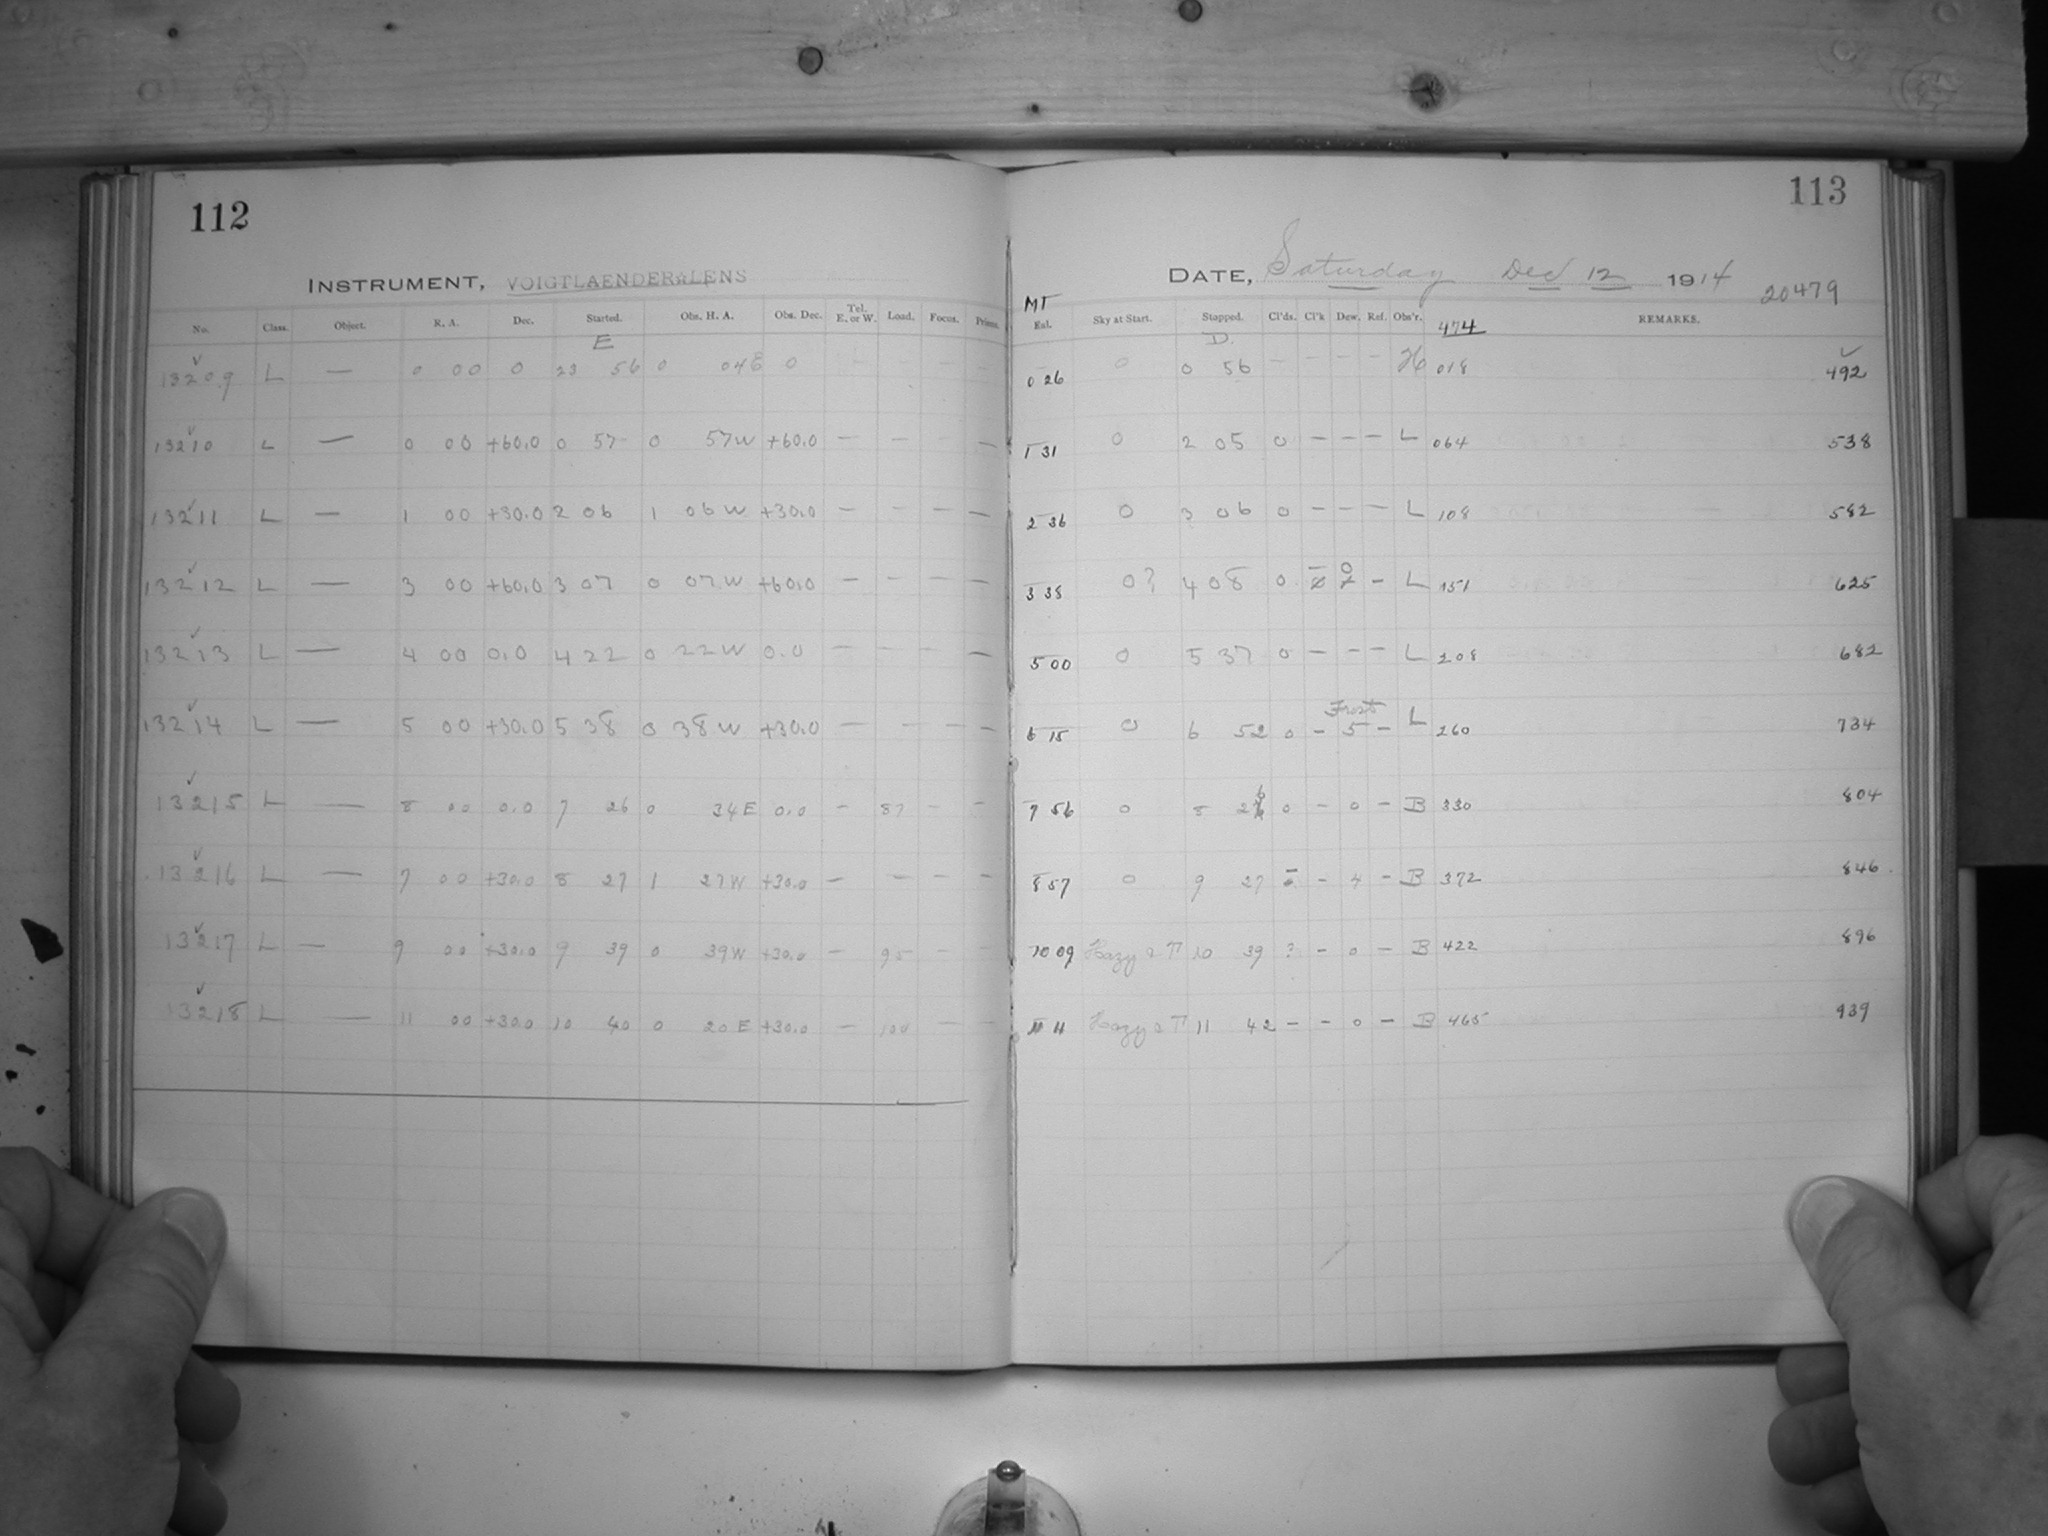 112
INSTRUMENT, VOIGTLAENDER LENS
No. Class. Object. R. A. Dec. Started. Obs. H. A. Obs. Dec. Tel. E. or W. Load. Focus. Prisms.
E
13209 L — 0 00 0 23 56 0 04E 0
13210 L — 0 00 +60.0 0 57 0 57W +60.0 — — — —
13211 L — 1 00 +30.0 2 06 1 06W +30.0 — — — —
13212 L — 3 00 +60.0 3 07 0 07W +60.0 — — — —
13213 L — 4 00 0.0 4 22 0 22W 0.0 — — — —
13214 L — 5 00 +30.0 5 38 0 38W +30.0 — — — —
13215 L — 8 00 0.0 7 26 0 34E 0.0 — 87 — —
13216 L — 7 00 +30.0 8 27 1 27W +30.0 — — — —
13217 L — 9 00 +30.0 9 39 0 39W +30.0 — 95 — —
13218 L — 11 00 +30.0 10 40 0 20E +30.0 — 100 — —
113
DATE, Saturday Dec 12 1914
20479
MT
Sky at Start. Stopped. Cl'ds. Cl'k Dew. Ref. Obs'r. 474 REMARKS.
D
0 26 0 0 56 — — — — H 018 492
1 31 0 2 05 0 — — — L 064 538
2 36 0 3 06 0 — — — L 108 582
3 38 0? 4 08 0 — 0 — L 151 625
5 00 0 5 37 0 — — — L 208 682
Frost
6 15 0 6 52 0 — 5 — L 260 734
7 56 0 8 26 0 — 0 — B 330 804
8 57 0 9 27 — — 4 — B 372 846
10 09 Hazy 10 39 ? — 0 — B 422 896
11 11 Hazy 11 42 — — 0 — B 465 939